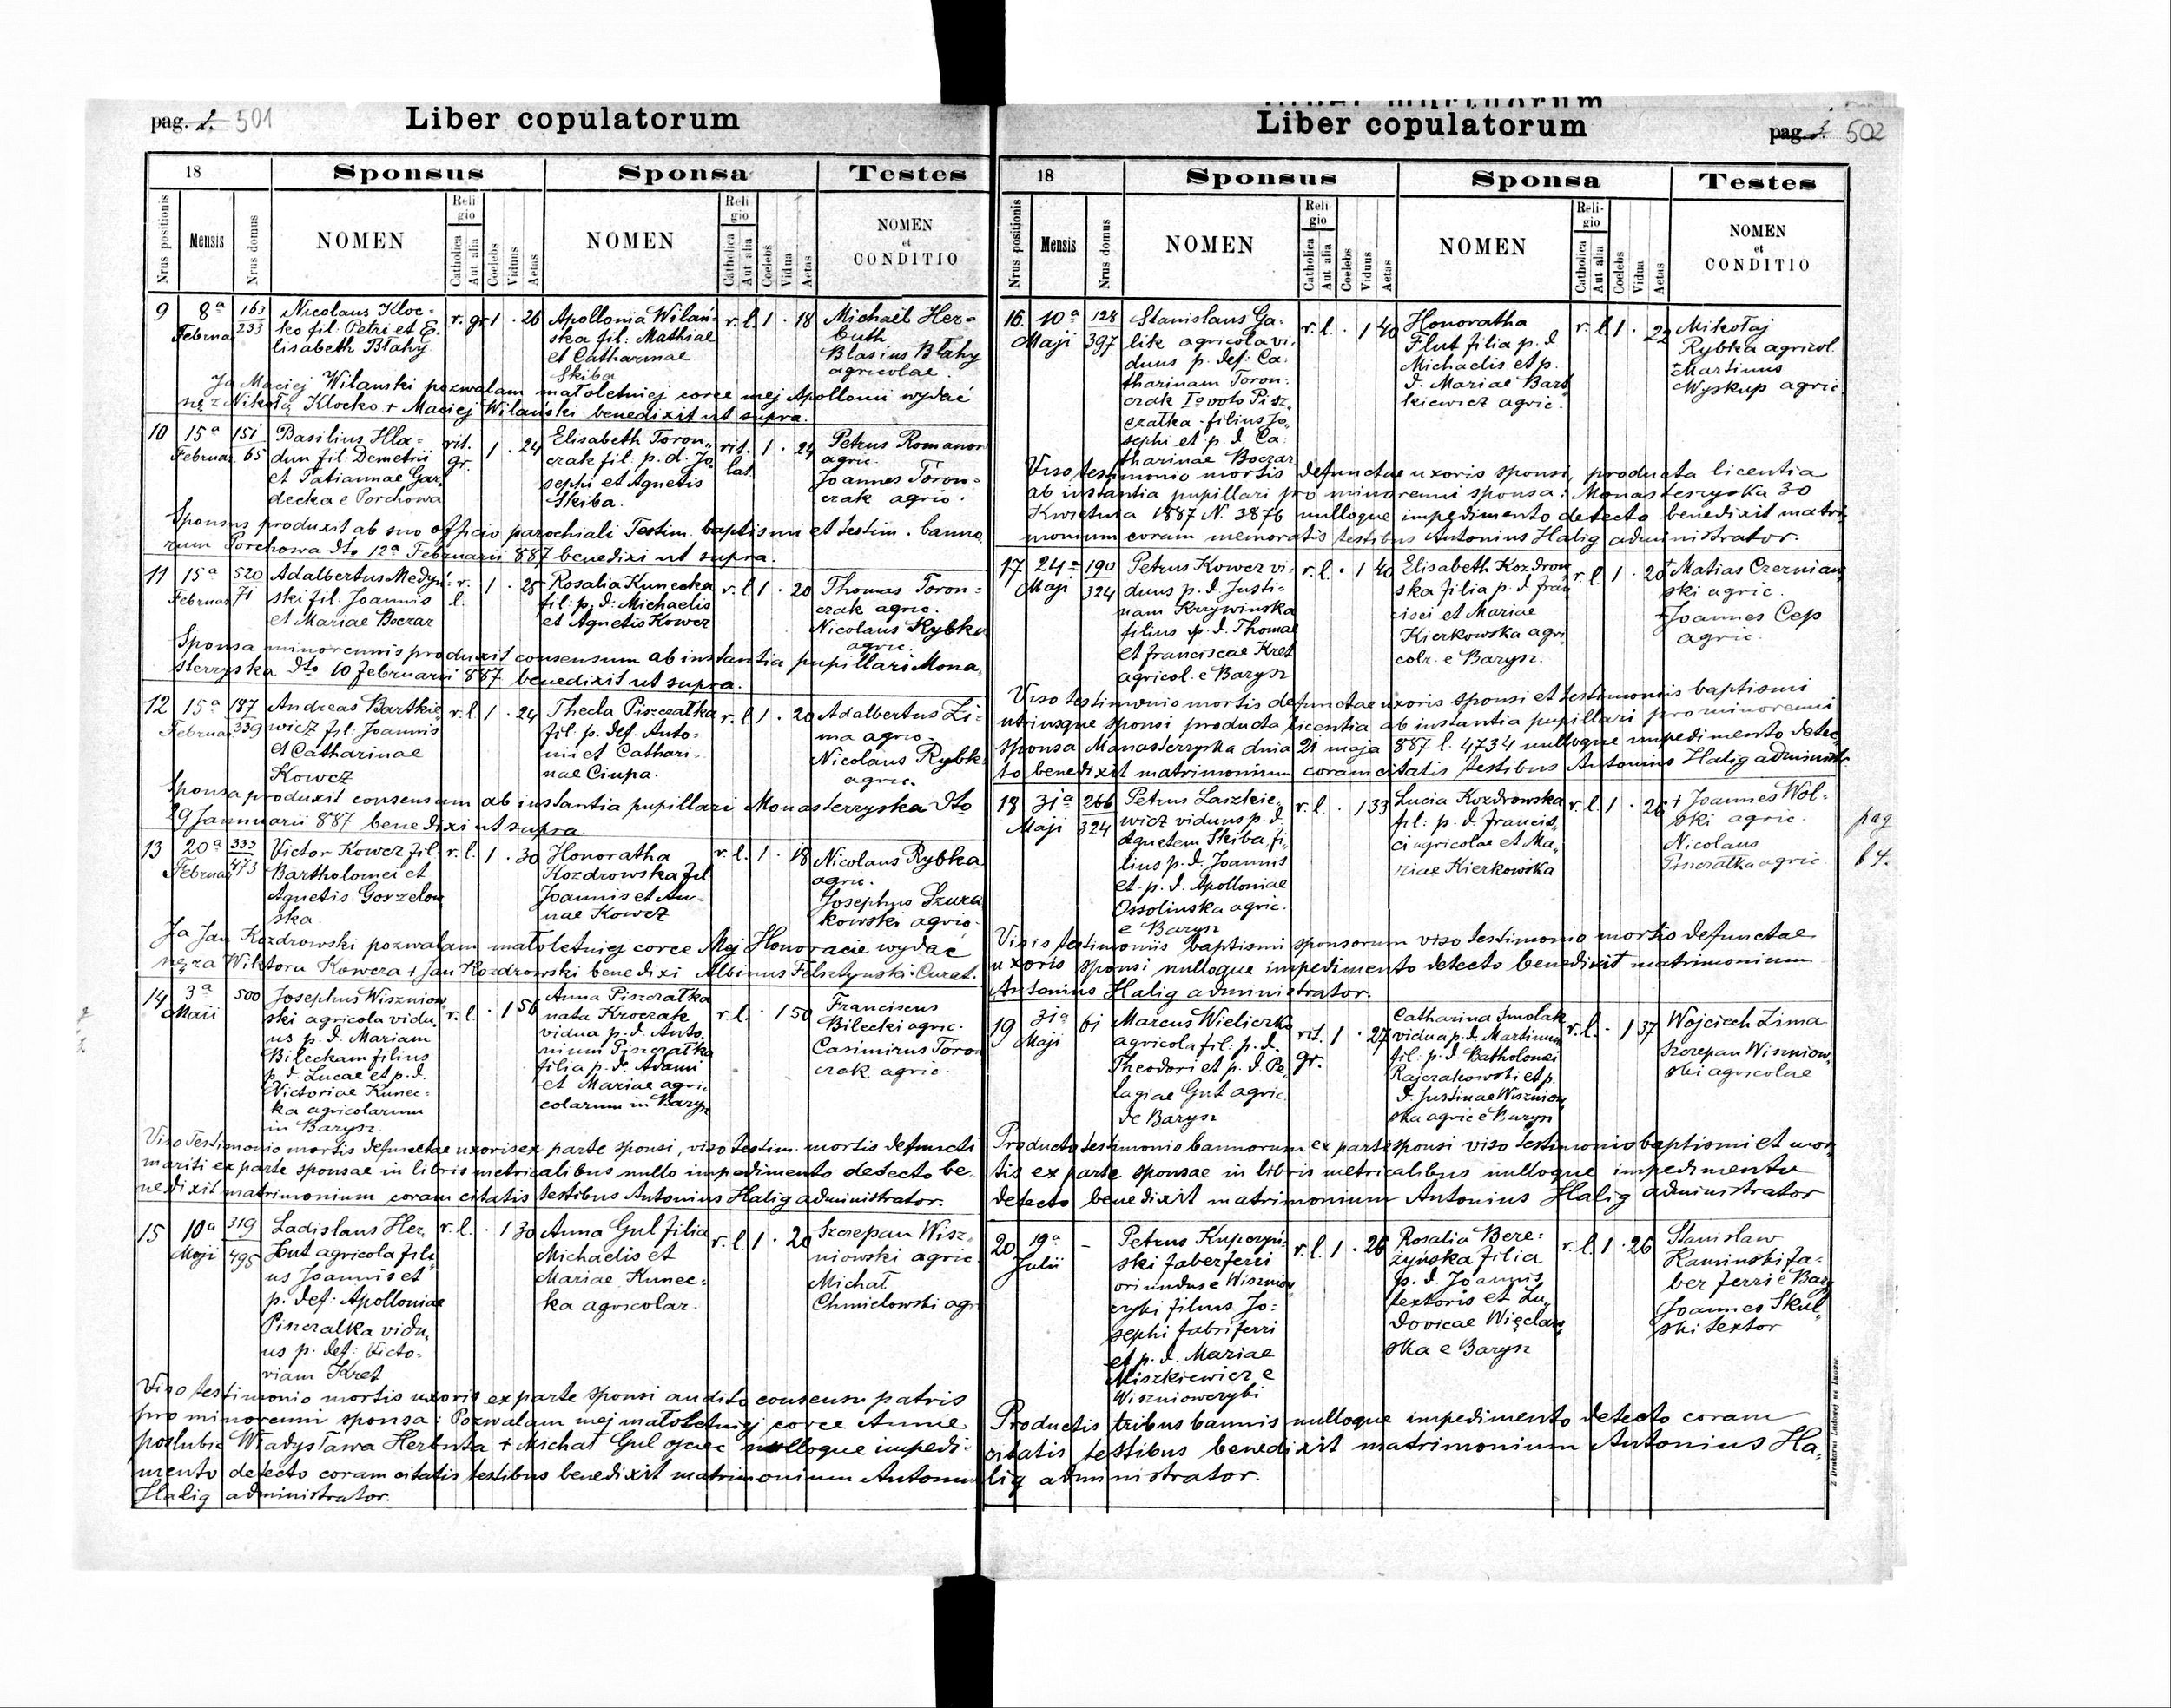 pag. 2. 501
Liber copulatorum
18
Sponsus
Sponsa
Testes
Nrus positionis
Mensis
Nrus domus
NOMEN
Religio
Catholica
Aut alia
Coelebs
Viduus
Aetas
NOMEN
Religio
Catholica
Aut alia
Coelebs
Vidua
Aetas
NOMEN
et
CONDITIO
9
8a
Februa
163
233
Nicolaus Kloc-
ko fil. Petri et E-
lisabeth Błahy
r. gr. 1 . 26
Apollonia Wilań-
ska fil: Mathiae
et Catharinae
Skiba
r. l. 1 . 18
Michael Her-
buth
Blasius Błahy
agricolae.
Ja Maciej Wilanski pozwalam małoletniej corce mej Apollonii wydać
się z Nikołą Klocko + Maciej Wilański benedixit ut supra.
10
15a
Februar.
151
65
Basilius Hla-
dun fil. Demetrii
et Tatiannae Gar-
decka e Porchowa
rit.
gr.
1 . 24
Elisabeth Toron-
czak fil. p. d. Jo-
sephi et Agnetis
Skiba.
rit.
lat
1 . 24
Petrus Romanow
agric.
Joannes Toron-
czak agric.
Sponsus produxit ab suo officio parochiali Testim. baptismi et testim. banno
rum Porchowa dto 12a Februarii 887 benedixi ut supra.
11
15a
Februar
520
71
Adalbertus Medyń-
ski fil. Joannis
et Mariae Boczar
r.
l.
1 . 25
Rosalia Kunecka
fil: p. d. Michaelis
et Agnetis Kowcz
r. l. 1 . 20
Thomas Toron-
czak agric.
Nicolaus Rybka
agric.
Sponsa minorennis produxit consensum ab instantia pupillari Mona
sterzyska dto 10 Februarii 887 benedixit ut supra.
12
15a
Februar
187
339
Andreas Bartkie-
wicz fil: Joannis
et Catharinae
Kowcz
r. l. 1 . 24
Thecla Piszczatka
fil: p. def. Anto-
nii et Cathari-
nae Ciupa.
r. l. 1 . 20
Adalbertus Zi-
ma agric.
Nicolaus Rybk
agric.
Sponsa produxit consensum ab instantia pupillari Monasterzyska dto
29 Jannuarii 887 benedixi ut supra
13
20a
Februar
333
473
Victor Kowcz fil.
Bartholomei et
Agnetis Gorzelow
ska.
r. l. 1 . 30
Honoratha
Kozdrowska fil
Joannis et An-
nae Kowcz
r. l. 1 . 18
Nicolaus Rybka
agric.
Josephus Szura
kowski agric.
Ja Jan Kozdrowski pozwalam małoletniej corce Mej Honoracie wydac
się za Wiktora Kowcza + Jan Kozdrowski benedixi Albinus Felsztynski Curat.
14
3a
Maii
500
Josephus Wiszniow
ski agricola vidu-
us p. d. Mariam
Bileckam filius
p. d. Lucae et p. d.
Victoriae Kunec-
ka agricolarum
in Barysz.
r. l. . 1 56
Anna Piszczatka
nata Kroczak
vidua p. d. Anto-
nium Piszczatka
filia p. d. Adami
et Mariae agri-
colarum in Barysz
r. l. . 1 50
Franciscus
Bilecki agric.
Casimirus Toron
czak agric.
Viso Testimonio mortis defunctae uxoris ex parte sponsi, viso testim. mortis defuncti
mariti ex parte sponsae in libris metricalibus nullo impedimento detecto be-
nedixit matrimonium coram citatis testibus Antonius Halig administrator.
15
10a
Maji
319
495
Ladislaus Her-
but agricola fili-
us Joannis et
p. def: Apolloniae
Piszczatka vidu-
us p. def: Victo-
riam Kret
r. l. . 1 30
Anna Gul filia
Michaelis et
Mariae Kunec-
ka agricolar.
r. l. 1 . 20
Szczepan Wisz-
niowski agric.
Michał
Chmielowski agr
Viso testimonio mortis uxoris ex parte sponsi audito consensu patris
pro minorenni sponsa: Pozwalam mej małoletniej corce Annie
poslubic Władysława Herbuta + Michał Gul ojciec nulloque impedi-
mento detecto coram citatis testibus benedixit matrimonium Antonius
Halig administrator.
Liber copulatorum
pag. 3. 502
18
Sponsus
Sponsa
Testes
Nrus positionis
Mensis
Nrus domus
NOMEN
Religio
Catholica
Aut alia
Coelebs
Viduus
Aetas
NOMEN
Religio
Catholica
Aut alia
Coelebs
Vidua
Aetas
NOMEN
et
CONDITIO
16.
10a
Maji
128
397
Stanislaus Ga-
lik agricola vi-
duus p. def: Ca-
tharinam Toron-
czak Io voto Pisz-
czatka - filius Jo-
sephi et p. d. Ca-
tharinae Boczar
r. l. . 1 40
Honoratha
Flut filia p. d.
Michaelis et p.
d. Mariae Bart
kiewicz agric.
r. l. 1 . 22
Mikołaj
Rybka agricol.
Martinus
Wyskup agric.
Viso testimonio mortis defunctae uxoris sponsi, producta licentia
ab instantia pupillari pro minorenni sponsa: Monasterzyska 30
Kwietnia 1887 N. 3876 nulloque impedimento detecto benedixit matri
monium coram memoratis testibus Antonius Halig administrator.
17
24a
Maji
190
324
Petrus Kowcz vi-
duus p. d. Justi-
nam Krzywinska
filius p. d. Thomae
et Franciscae Kret
agricol. e Barysz
r. l. . 1 40
Elisabeth Kozdrow
ska filia p. d. Fran
cisci et Mariae
Kierkowska agri
colr. e Barysz.
r. l. 1 . 20
+ Matias Czerniaw
ski agric.
+ Joannes Cep
agric.
Viso testimonio mortis defunctae uxoris sponsi et testimoniis baptismi
utriusque sponsi producta licentia ab instantia pupillari pro minorenni
sponsa Manasterzyska dnia 21 maja 887 l. 4734 nulloque impedimento detec-
to benedixit matrimonium coram citatis testibus Antonius Halig administr.
18
31a
Maji
266
324
Petrus Laszkie-
wicz viduus p. d.
Agnetem Skiba fi-
lius p. d. Joannis
et p. d. Apolloniae
Ossolinska agric.
e Barysz
r. l. . 1 33
Lucia Kozdrowska
fil: p. d. Francis-
ci agricolae et Ma-
riae Kierkowska
r. l. 1 . 26
+ Joannes Wol-
ski agric.
Nicolaus
Piszczatka agric.
pag
64.
Visis testimoniis baptismi sponsorum viso testimonio mortis defunctae
uxoris sponsi nulloque impedimento detecto benedixit matrimonium
Antonius Halig administrator.
19
31a
Maji
61
Marcus Wieliczko
agricola fil: p. d.
Theodori et p. d. Pe-
lagiae Gut agric.
de Barysz
rit.
gr.
1 . 27
Catharina Smolak
vidua p. d. Martinum
fil: p. d. Batholomei
Rajczakowski et p.
d. Justinae Wiszniow
ska agric e Barysz
r. l. . 1 37
Wojciech Zima
Szczepan Wiszniow-
ski agricolae
Producto testimonio bannorum ex parte sponsi viso testimonio baptismi et mor-
tis ex parte sponsae in libris metricalibus nulloque impedimento
detecto benedixit matrimonium Antonius Halig administrator
20
19a
Julii
-
Petrus Kuporyń-
ski faber ferri
oriundus e Wiszniow
czyki filius Jo-
sephi fabri ferri
et p. d. Mariae
Miszkiewicz e
Wiszniowczyki
r. l. 1 . 26
Rosalia Bere-
żyńska filia
p. d. Joannis
textoris et Lu-
dovicae Więcław
ska e Barysz
r. l. 1 . 26
Stanisław
Kaminski fa-
ber ferri e Barysz
Joannes Skul-
ski textor
Productis tribus bannis nulloque impedimento detecto coram
citatis testibus benedixit matrimonium Antonius Ha-
lig administrator.